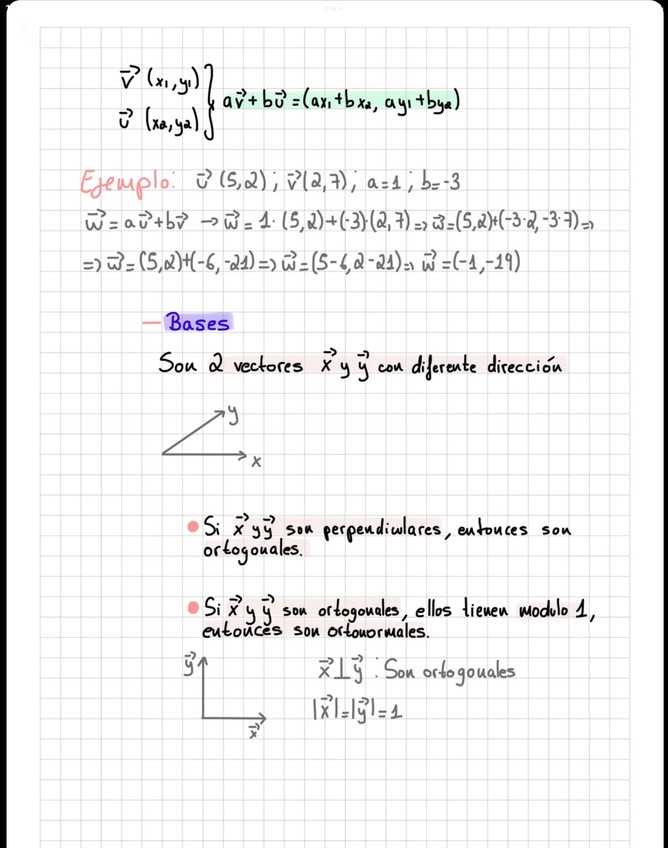 v⃗ (x₁,y₁)
u⃗ (x₂,y₂)
av⃗+bu⃗=(ax₁+bx₂, ay₁+by₂)
Ejemplo: u⃗ (5,2) ; v⃗(2,7) ; a=1 ; b=-3
w⃗ = au⃗+bv⃗ → w⃗ = 1·(5,2)+(-3)·(2,7) => w⃗=(5,2)+(-3·2,-3·7)=>
=> w⃗=(5,2)+(-6,-21)=> w⃗=(5-6,2-21)=> w⃗=(-1,-19)
— Bases
Son 2 vectores x⃗ y y⃗ con diferente dirección
y
x
• Si x⃗ y y⃗ son perpendiculares, entonces son
ortogonales.
• Si x⃗ y y⃗ son ortogonales, ellos tienen modulo 1,
entonces son ortonormales.
y⃗
x⃗⊥y⃗ : Son ortogonales
|x⃗|=|y⃗|=1
x⃗